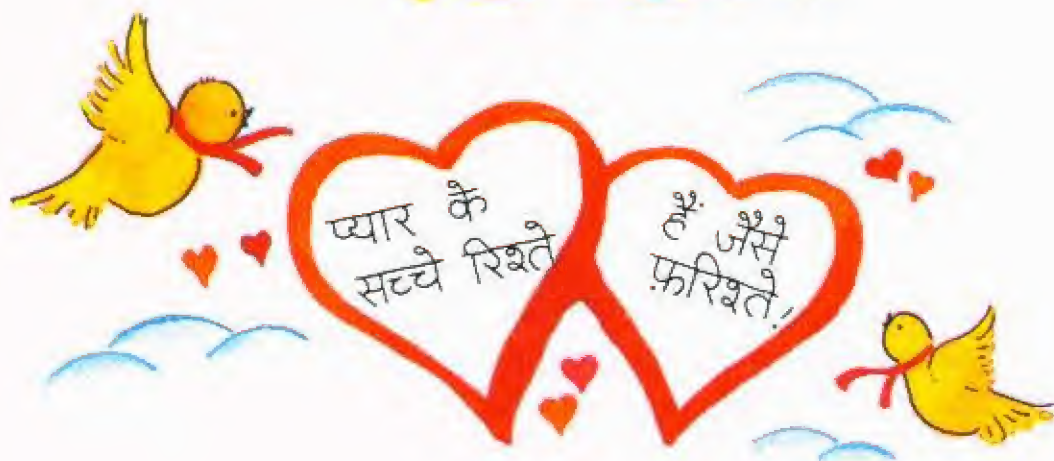 प्यार के
सच्चे रिश्ते
हैं जैसे
फ़रिश्ते!